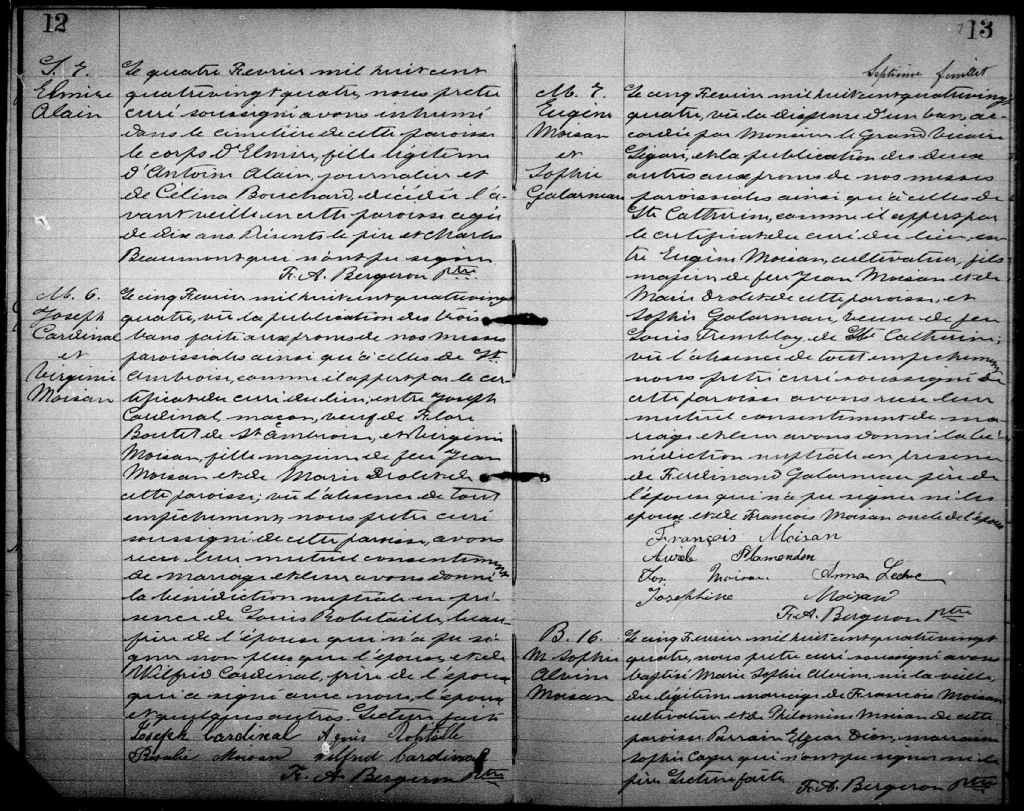 12
S. 7.
Elmire
Alain
Le quatre Fevrier mil huit cent
quatrevingt quatre, nous pretre
curé soussigné avons inhumé
dans le cimetière de cette paroisse
le corps d'Elmire, fille légitime
d'Antoine Alain, journalier et
de Célina Bouchard, décédée l'a-
vant veille en cette paroisse agée
de dix ans. Présents le père et Charles
Beaumont qui n'ont pu signer
F. A. Bergeron ptre
M. 6.
Joseph
Cardinal
et
Virginie
Moisan
Le cinq Fevrier mil huit cent quatrevingt
quatre, vu la publication des trois
bans faite aux prones de nos messes
paroissiales ainsi qu'à celles de St
Ambroise, comme il appert par le cer-
tificat du curé du lieu, entre Joseph
Cardinal, maçon, veuf de Flore
Boutet de St Ambroise, et Virginie
Moisan, fille majeure de feu Jean
Moisan et de Marie Drolet de
cette paroisse; vu l'absence de tout
empêchement, nous pretre curé
soussigné de cette paroisse, avons
reçu leur mutuel consentement
de mariage et leur avons donné
la bénédiction nuptiale en pré-
sence de Louis Robitaille, beau-
père de l'épouse qui n'a pu si-
gner non plus que l'épouse, et de
Wilfrid Cardinal, frère de l'époux
qui a signé avec nous, l'époux
et quelques autres. Lecture faite
Joseph Cardinal Agnis Robitaille
Rosalie Moisan Wilfrid Cardinal
F. A. Bergeron ptre
13
Septième feuillet
M. 7.
Eugène
Moisan
et
Sophie
Galarneau
Le cinq Fevrier mil huit cent quatrevingt
quatre, vu la dispense d'un ban, ac-
cordée par Monsieur le Grand Vicaire
Légaré, et la publication des deux
autres aux prones de nos messes
paroissiales ainsi qu'à celles de
Ste Catherine, comme il appert par
le certificat du curé du lieu, en-
tre Eugène Moisan, cultivateur, fils
majeur de feu Jean Moisan et de
Marie Drolet de cette paroisse, et
Sophie Galarneau, veuve de feu
Louis Tremblay, de Ste Catherine;
vu l'absence de tout empêchement
nous pretre curé soussigné de
cette paroisse avons reçu leur
mutuel consentement de ma-
riage et leur avons donné la bé-
nédiction nuptiale en présence
de Ferdinand Galarneau père de
l'épouse qui n'a pu signer ni les
époux et de Francois Moisan oncle de l'époux
François Moisan
Aurèle Plamondon
Jos. Moisan Anna Leduc
Josephine Moisan
F. A. Bergeron ptre
B. 16.
M. Sophie
Alvine
Moisan
Le cinq Fevrier mil huit cent quatre vingt
quatre, nous pretre curé soussigné avons
baptisé Marie Sophie Alvine, née la veille,
du légitime mariage de Francois Moisan
cultivateur et de Philomène Moisan de cette
paroisse. Parrain Elzear Dion, marraine
Sophie Cayer qui n'ont pu signer ni le
père. Lecture faite
F. A. Bergeron ptre